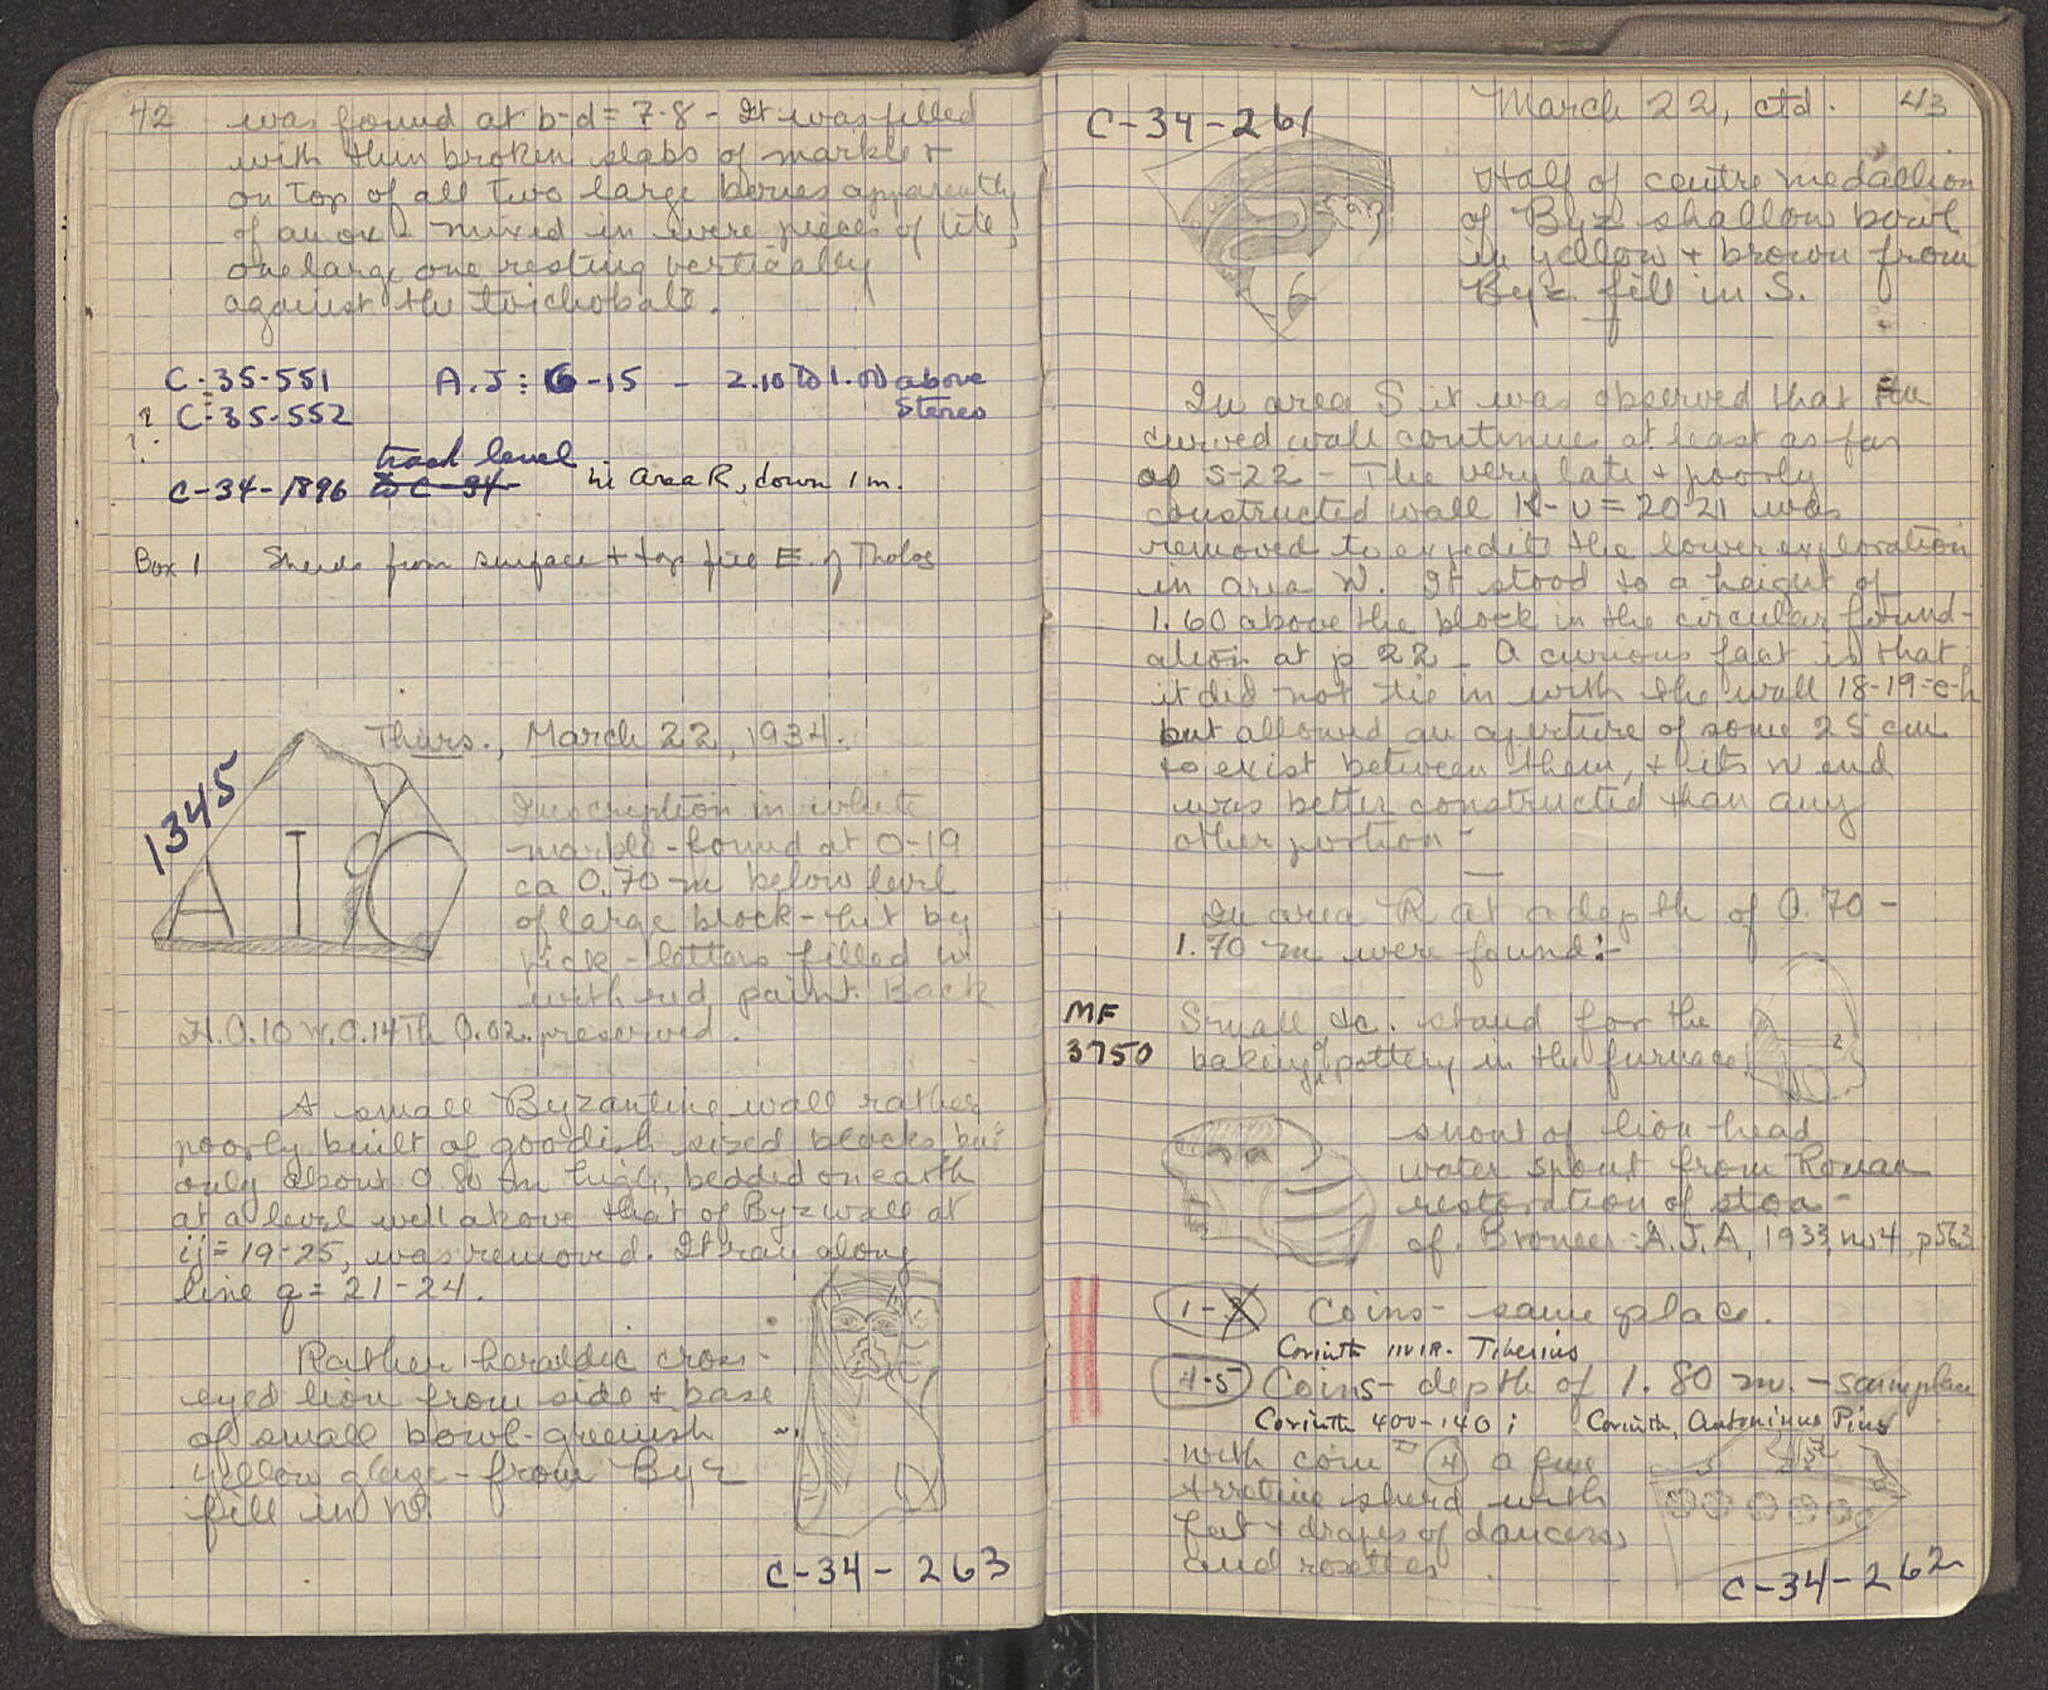 42
was found at b-d = 7-8 - It was filled
with thin broken slabs of marble +
on top of all two large bones apparently
of an ox - mixed in were pieces of tile,
one large one resting vertically
against the toichobate.
C-35-551 A.J: 6-15 - 2.10 to 1.00 above
Stereo
? C-35-552
?
track level
C-34-1896 to C-34- in Area R, down 1 m.
Box 1 Sherds from surface + top fill E. of Tholos
Thurs., March 22, 1934.
1345
ΑΙΟ
Inscription in white
marble - found at O-19
ca 0.70 m below level
of large block - hit by
pick - letters filled in
with red paint. Back
H. 0.10 W. 0.14 Th 0.02. preserved.
A small Byzantine wall rather
poorly built of goodish sized blocks but
only about 0.80 m high, bedded on earth
at a level well above that of Byz wall at
ij = 19-25, was removed. It ran along
line q = 21-24.
Rather heraldic cross-
eyed lion from side + base
of small bowl - greenish
yellow glaze - from Byz
fill in N.
C-34-263
March 22, ctd. 43
C-34-261
Half of centre medallion
of Byz shallow bowl
in yellow + brown from
Byz. fill in S.
In area S it was observed that the
curved wall continues at least as far
as S-22 - The very late + poorly
constructed wall K-U = 20-21 was
removed to expedite the lower exploration
in area N. It stood to a height of
1.60 above the block in the circular found-
ation at p 22 - A curious fact is that
it did not tie in with the wall 18-19 = e-h
but allowed an aperture of some 25 cm
to exist between them, + its N end
was better constructed than any
other portion -
In area R at a depth of 0.70 -
1.70 m were found :-
MF
3750
Small tc. stand for the
baking of pottery in the furnace
2
snout of lion head
water spout from Roman
restoration of stoa -
cf. Broneer - A.J.A, 1933, no 4, p 563
1-3 Coins - same place.
Corinth IIVIR. Tiberius
4-5 Coins - depth of 1.80 m. - same place
Corinth 400-140 ; Corinth, Antoninus Pius
With coin 4 a fine
Arretine sherd with
feet + drapes of dancers,
and rosettes
C-34-262